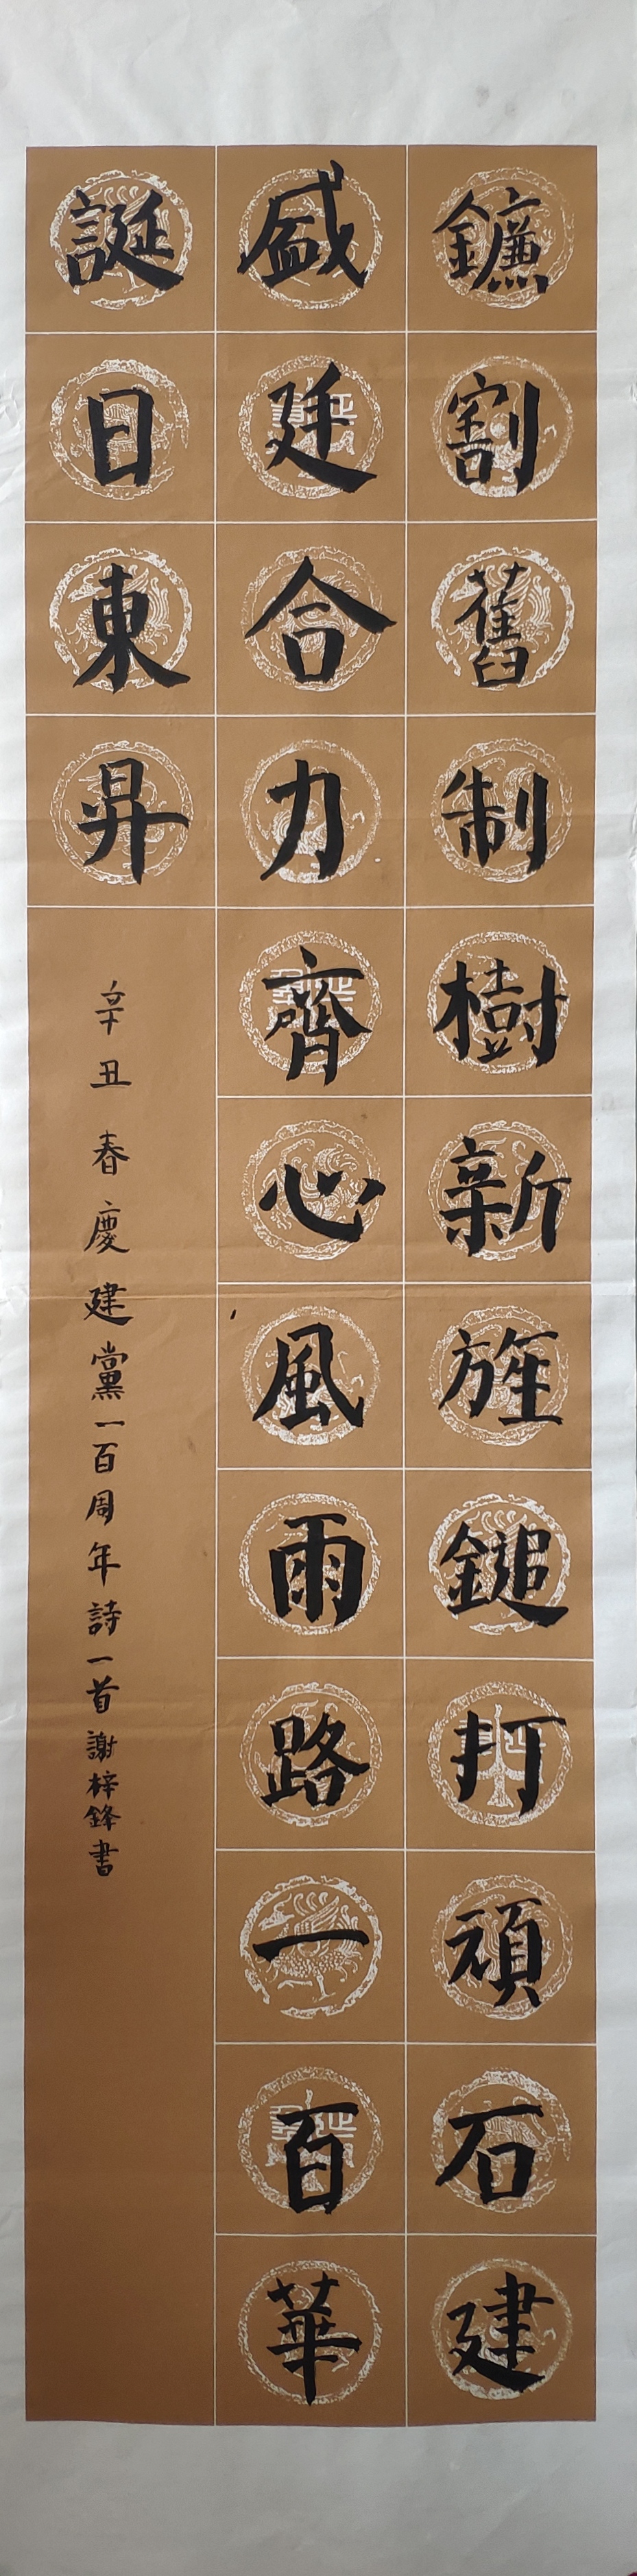 鐮割舊制樹新旌鎚打頑石建
盛廷合力齊心風雨路一百華
誕日東昇
辛丑春慶建黨一百周年詩一首謝梓鋒書